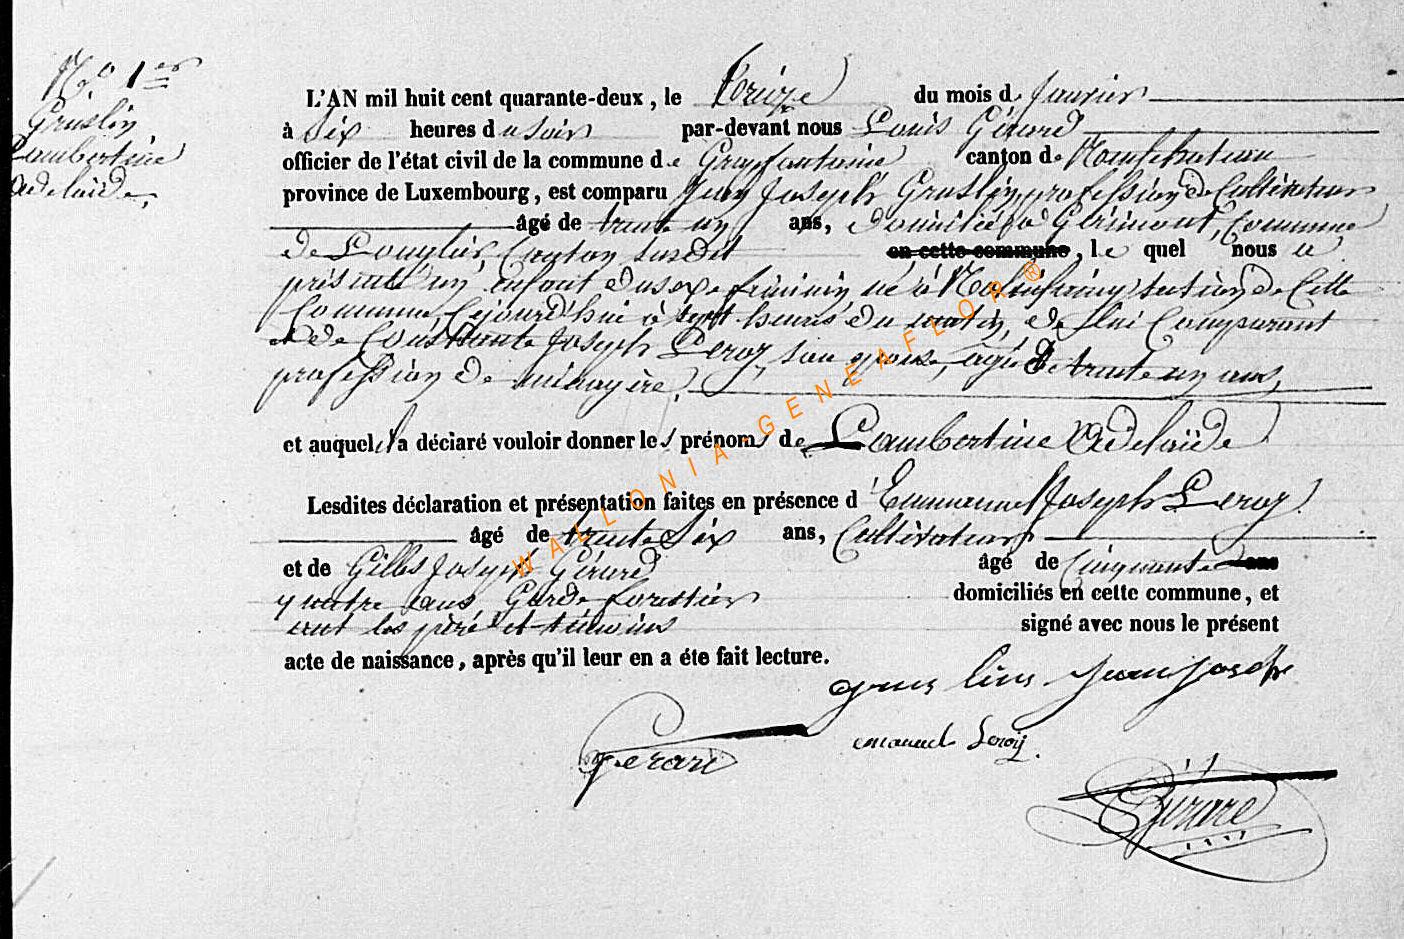 N.o 1er
Gruslin,
Lambertine
Adelaïde.
L'AN mil huit cent quarante-deux, le treize du mois de Janvier
à Six heures du Soir par-devant nous Louis Gérard
officier de l'état civil de la commune de Grapfontaine canton de Neufchateau
province de Luxembourg, est comparu Jean Joseph Gruslin, profession de Cultivateur
âgé de trente un ans, domicilié à Gérimont, Commune
de Longlier, Canton susdit en cette commune, le quel nous a
présenté un enfant du sexe féminin, né à section de Cette
Commune Cejourd'hui à sept heures du matin, de lui Comparant
et de Constante Joseph Leroy, son épouse, agée de trente un ans,
profession de ménagère.
et auquel il a déclaré vouloir donner les prénoms de Lambertine Adelaïde
Lesdites déclaration et présentation faites en présence d'Emmanuel Joseph Leroy
âgé de trente Six ans, Cultivateur
et de Gilles Joseph Gérard âgé de Cinquante ans
quatre ans, Garde forestier domiciliés en cette commune, et
ont les père et témoins signé avec nous le présent
acte de naissance, après qu'il leur en a éte fait lecture.
grus lins jean joseph
Gerard emanuel Leroy.
Gérard
WALLONIA-GENEAFLOR®